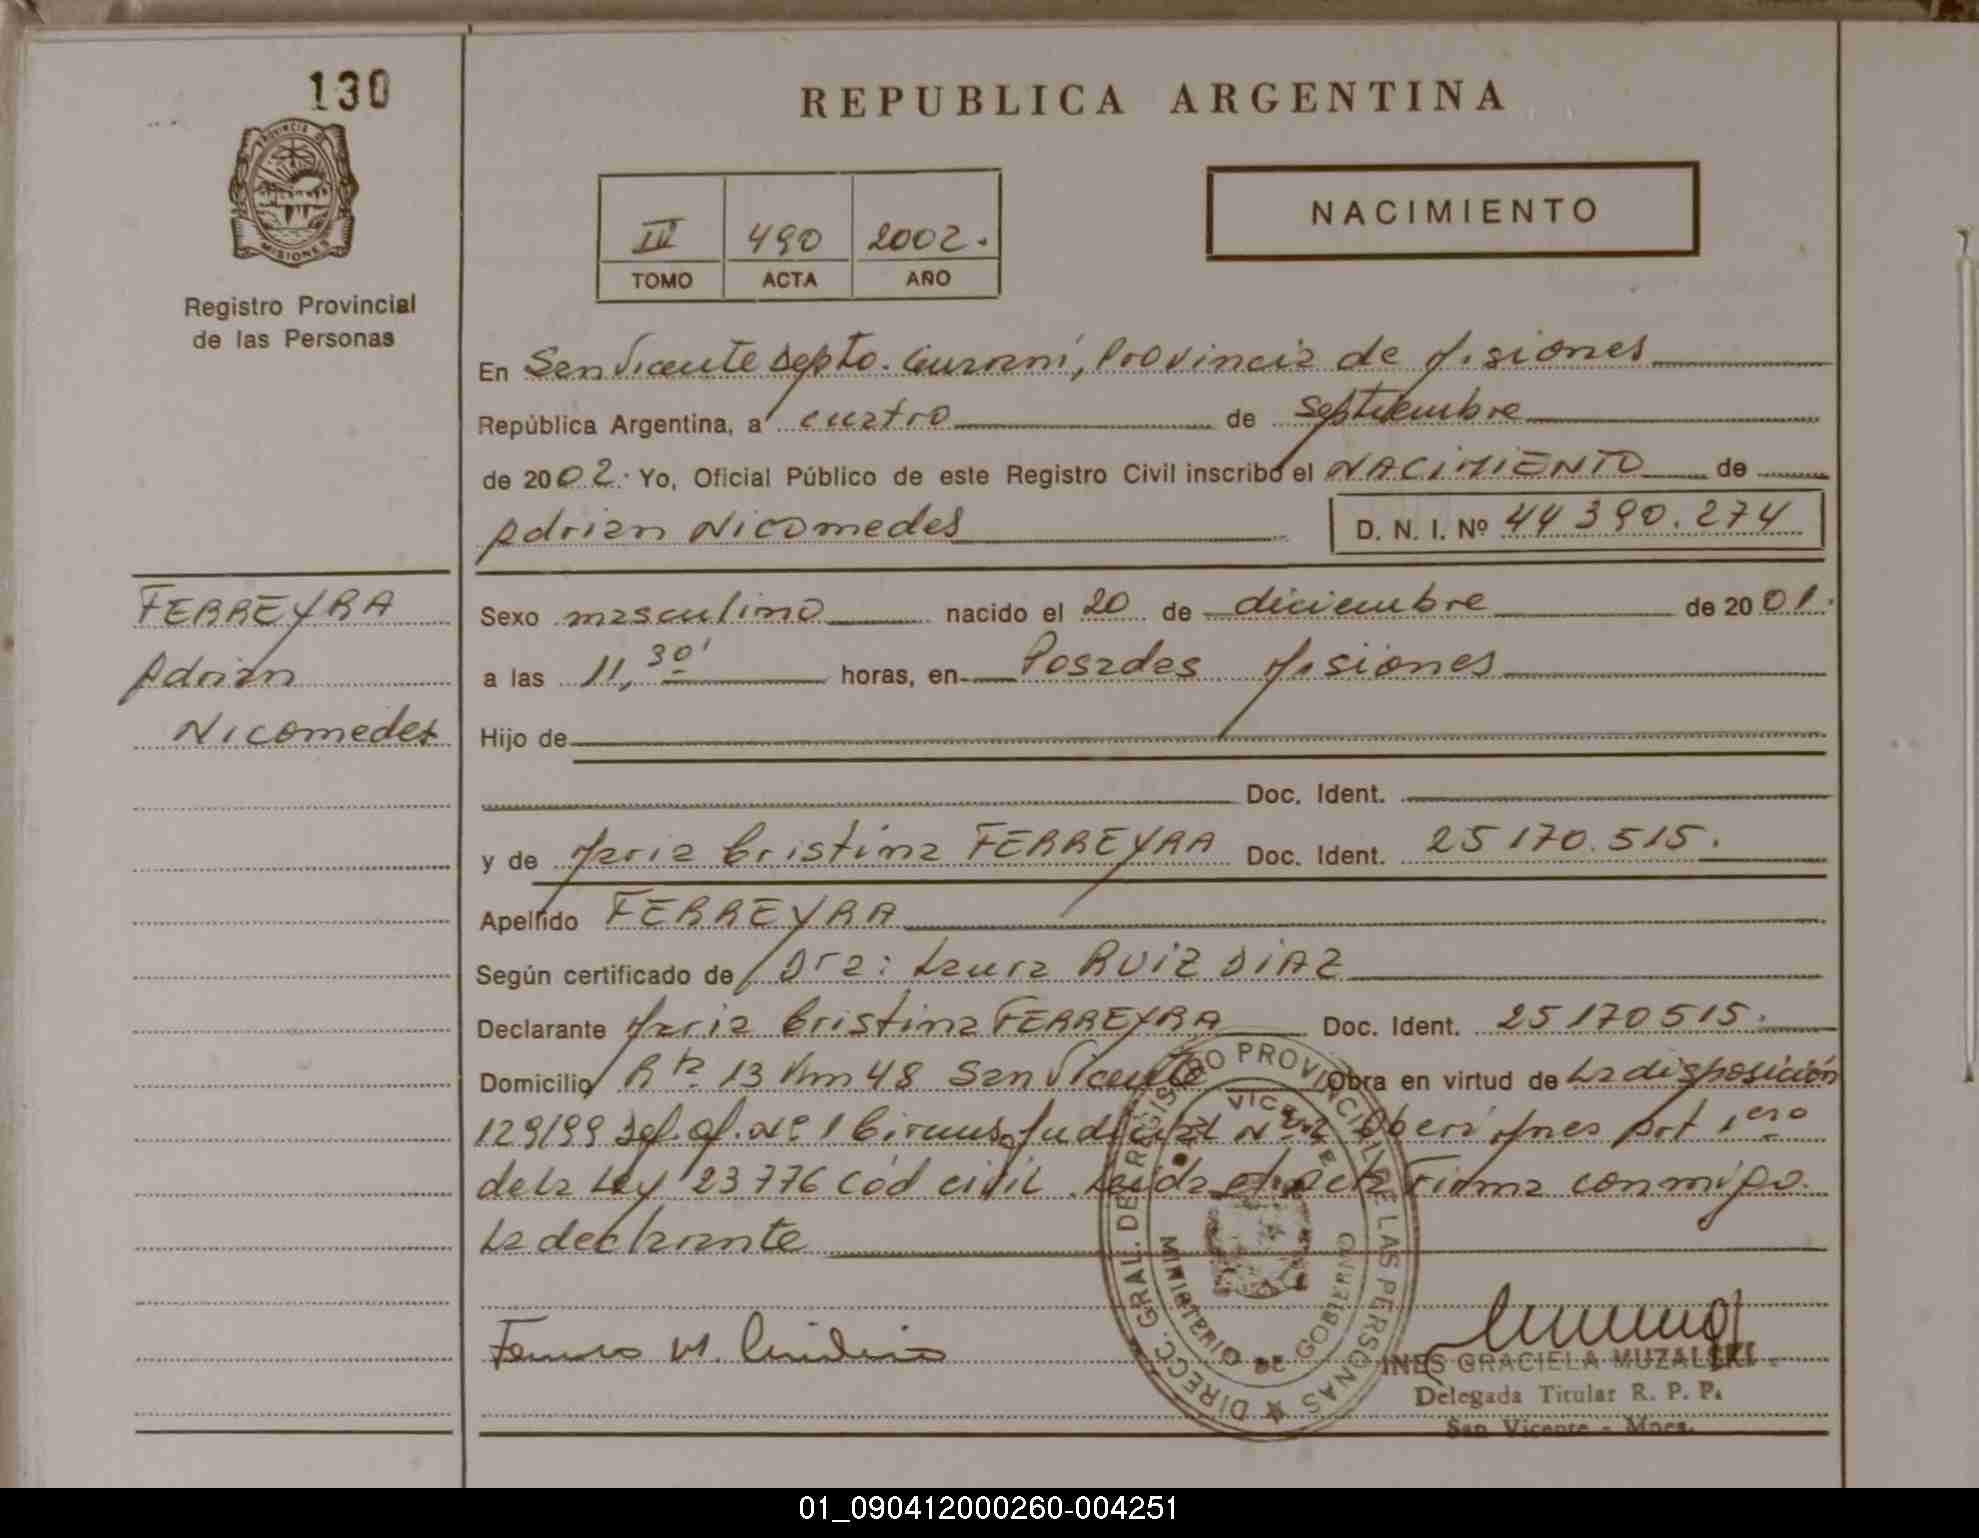 130
PROVINCIA DE
MISIONES
Registro Provincial
de las Personas
REPUBLICA ARGENTINA
NACIMIENTO
III 490 2002.
TOMO ACTA AÑO
En San Vicente Depto. Guaraní, Provincia de Misiones
República Argentina, a cuatro de septiembre
de 2002. Yo, Oficial Público de este Registro Civil inscribo el NACIMIENTO de
Adrian Nicomedes D. N. I. Nº 44 390.274
FERREYRA
Adrian
Nicomedes
Sexo masculino nacido el 20 de diciembre de 2001.
a las 11,30' horas, en Posadas Misiones
Hijo de
Doc. Ident.
y de Maria Cristina FERREYRA Doc. Ident. 25 170.515.
Apellido FERREYRA
Según certificado de Dra: Laura RUIZ DIAZ
Declarante Maria Cristina FERREYRA Doc. Ident. 25 170 515.
Domicilio Rta 13 Km 48 San Vicente Obra en virtud de La disposición
129/99 Def. Of. Nº 1 Circuns. Judicial Nº 2 Obera Mnes Art 1ero
de la Ley 23776 Cód civil. Leída el acta Firma conmigo
La declarante
DIRECC. GRAL. DE REGISTRO PROVINCIAL DE LAS PERSONAS
MINISTERIO DE GOBIERNO
INES GRACIELA MUZALSKI
Delegada Titular R. P. P.
San Vicente - Mnes.
01_090412000260-004251